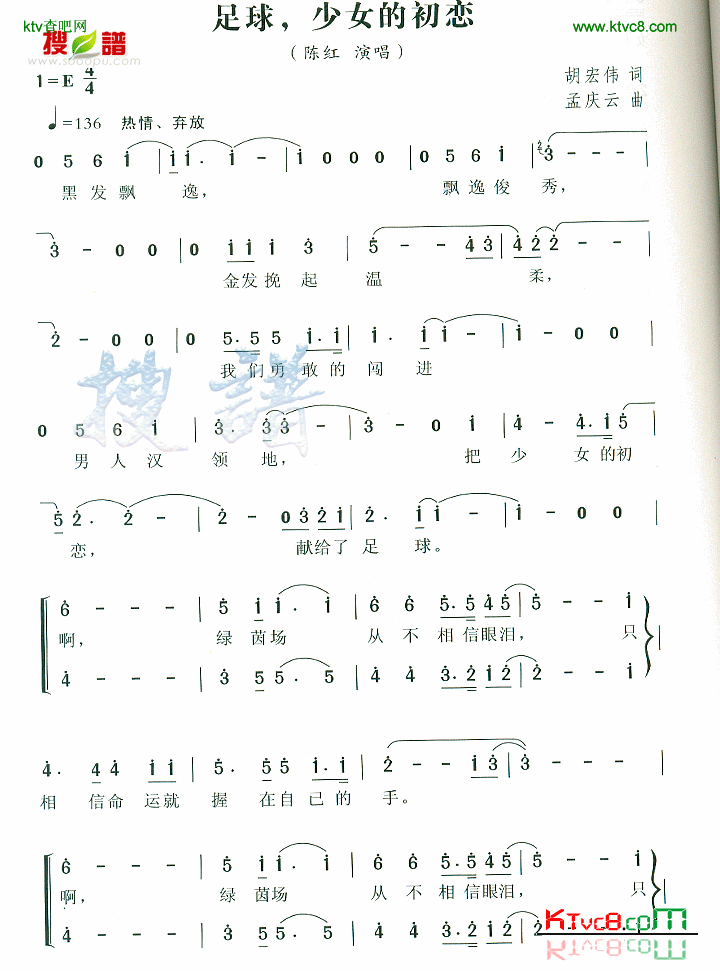 ktv查吧网
www.ktvc8.com
足球，少女的初恋
搜谱
www.sooopu.com
（陈红 演唱）
1=E 4/4
胡宏伟 词
孟庆云 曲
♩=136 热情、弃放
0 5 6 i | i i. i - | i 0 0 0 | 0 5 6 i | 3 - - -
黑发飘逸， 飘逸俊秀，
3 - 0 0 | 0 i i i 3 | 5 - - 4 3 | 4 2 2 - -
金发挽起温柔，
2 - 0 0 | 0 5. 5 5 i. i | i. i i - | i - 0 0
我们勇敢的闯进
0 5 6 i | 3. 3 3 - | 3 - 0 i | 2 - 4. i 5
男人汉领地， 把少女的初
5 2. 2 - | 2 - 0 3 2 i | 2. i i - | i - 0 0
恋， 献给了足球。
6 - - - | 5 i i. i | 6 6 5. 5 4 5 | 5 - - i
啊， 绿茵场从不相信眼泪， 只
4 - - - | 3 3 5 5. 5 | 4 4 3. 2 i 2 | 2 - - i
4. 4 4 i i | 5. 5 5 i. i | 2 - - i 3 | 3 - - -
相信命运就握在自己的手。
6 - - - | 5 i i. i | 6 6 5. 5 4 5 | 5 - - i
啊， 绿茵场从不相信眼泪， 只
4 - - - | 3 3 5 5. 5 | 4 4 3. 2 i 2 | 2 -
KTvc8.com
搜谱